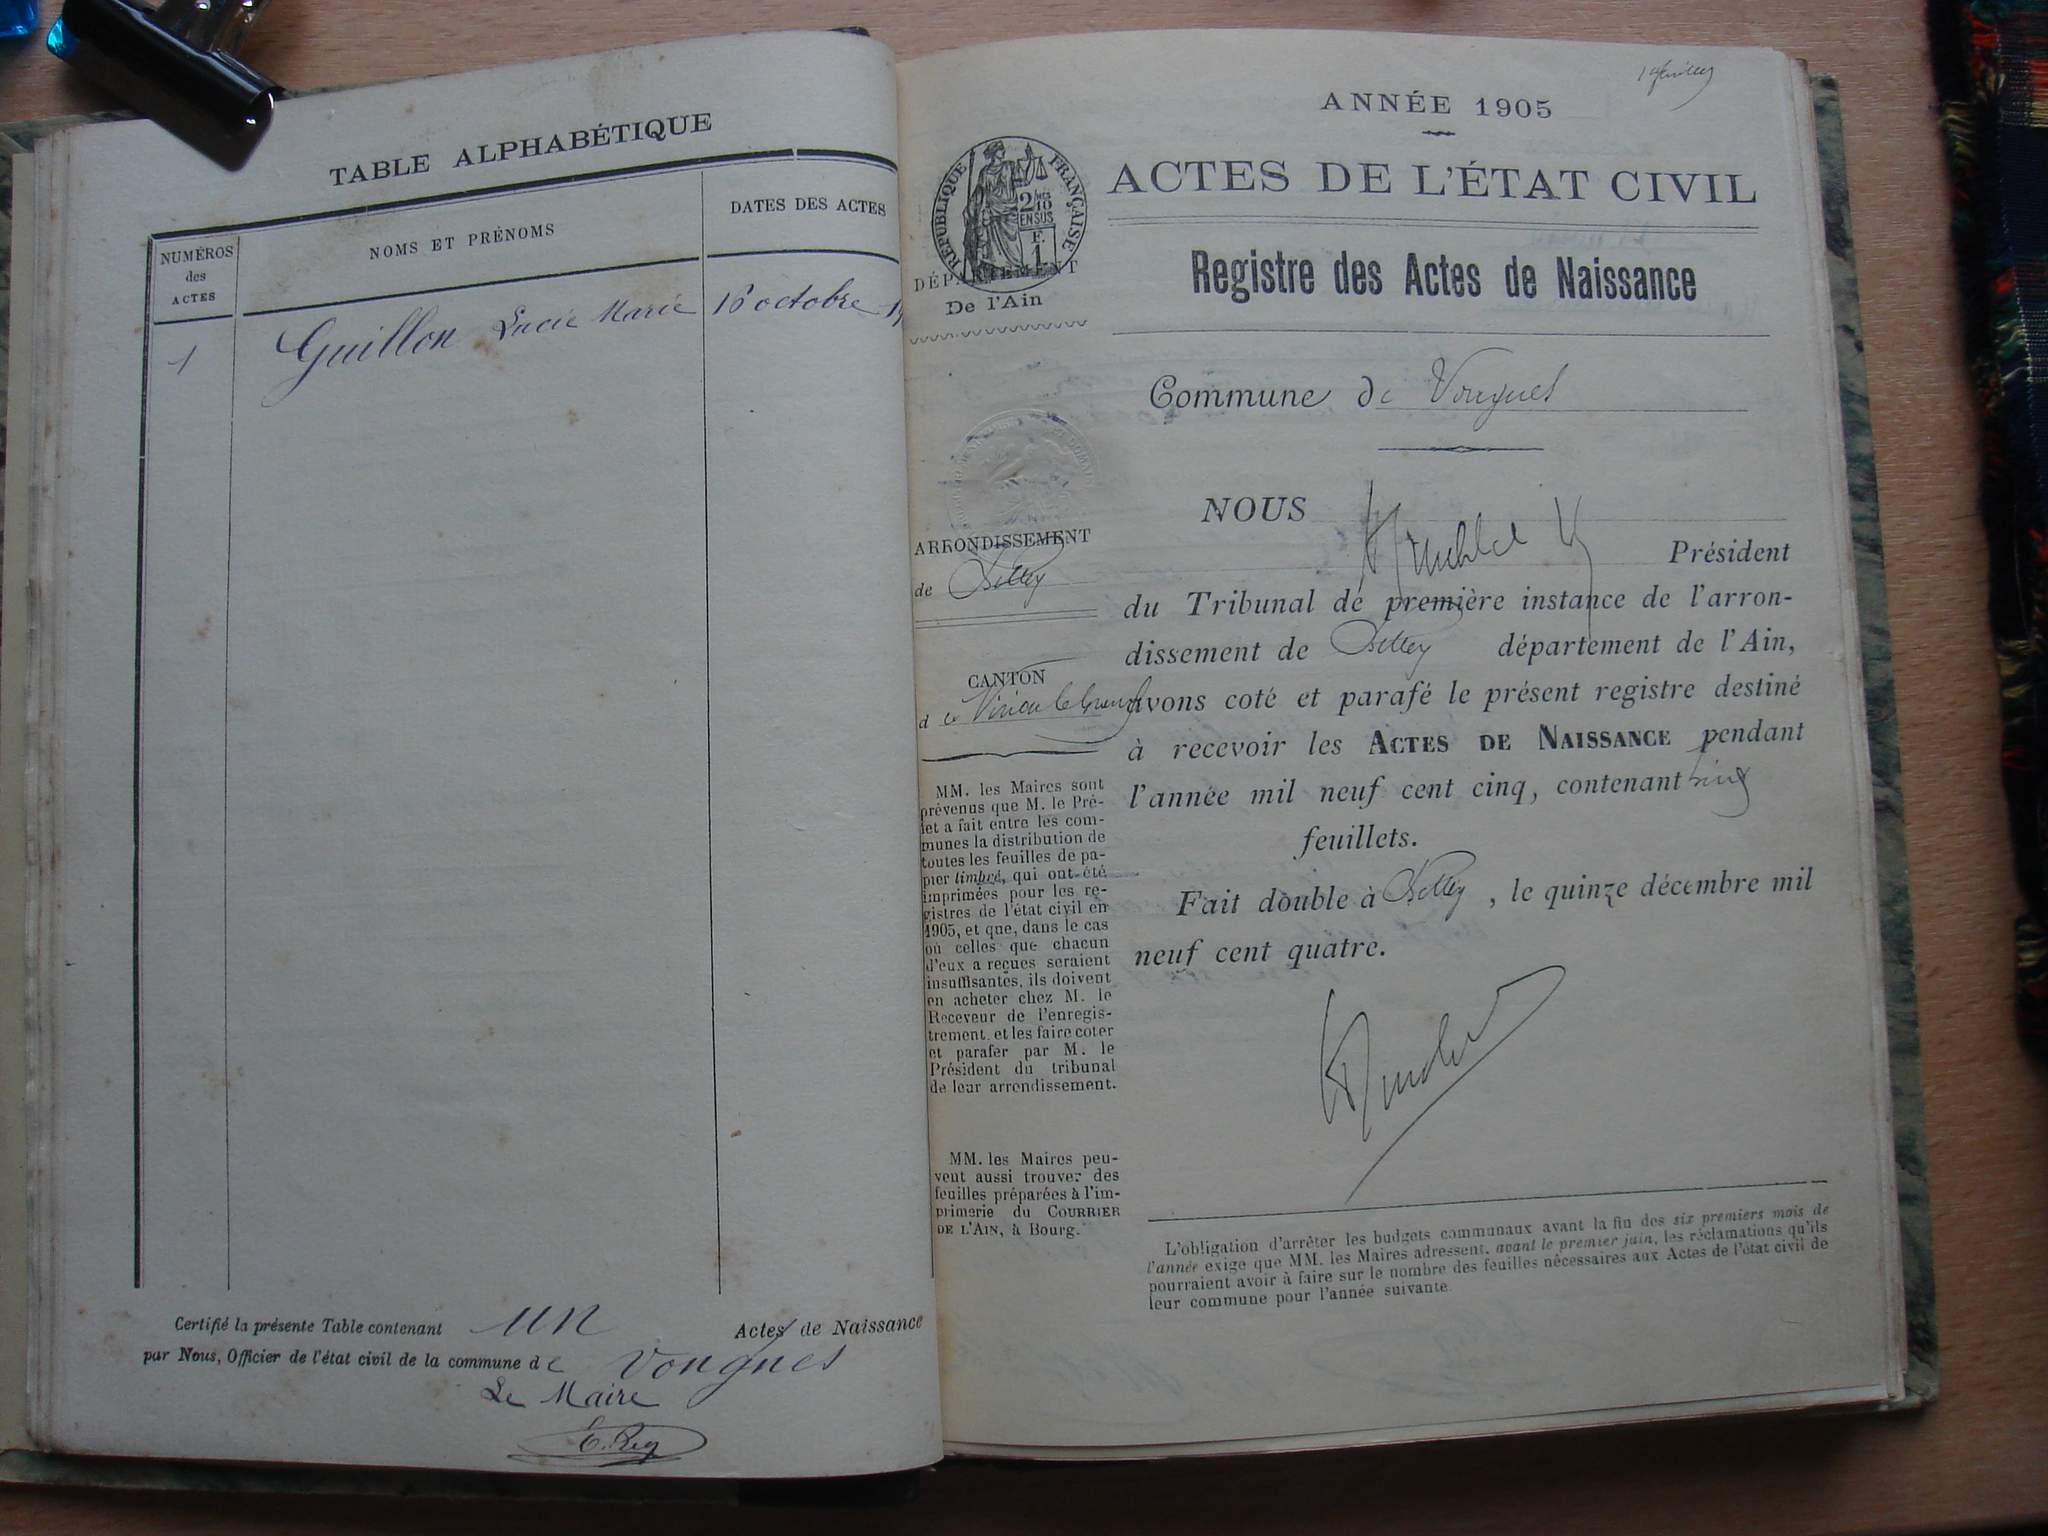 TABLE ALPHABÉTIQUE
NUMÉROS
des
ACTES
NOMS ET PRÉNOMS
DATES DES ACTES
1 Guillon Lucie Marie 16 octobre
Certifié la présente Table contenant un Actes de Naissance
par Nous, Officier de l'état civil de la commune de Vongnes
Le Maire
E. Rey
ANNÉE 1905
ACTES DE L'ÉTAT CIVIL
Registre des Actes de Naissance
RÉPUBLIQUE FRANÇAISE
2/10
EN SUS
F.
1
DÉPARTEMENT
De l'Ain
Commune de Vongnes
ARRONDISSEMENT
de Belley
CANTON
de Virieu le Grand
MM. les Maires sont
prévenus que M. le Pré-
fet a fait entre les com-
munes la distribution de
toutes les feuilles de pa-
pier timbré, qui ont été
imprimées pour les re-
gistres de l'état civil en
1905, et que, dans le cas
où celles que chacun
d'eux a reçues seraient
insuffisantes, ils doivent
en acheter chez M. le
Receveur de l'enregis-
trement, et les faire coter
et parafer par M. le
Président du tribunal
de leur arrondissement.
MM. les Maires peu-
vent aussi trouver des
feuilles préparées à l'im-
primerie du COURRIER
DE L'AIN, à Bourg.
NOUS
Président
du Tribunal de première instance de l'arron-
dissement de Belley département de l'Ain,
avons coté et parafé le présent registre destiné
à recevoir les ACTES DE NAISSANCE pendant
l'année mil neuf cent cinq, contenant
feuillets.
Fait double à Belley, le quinze décembre mil
neuf cent quatre.
L'obligation d'arrêter les budgets communaux avant la fin des six premiers mois de
l'année exige que MM. les Maires adressent, avant le premier juin, les réclamations qu'ils
pourraient avoir à faire sur le nombre des feuilles nécessaires aux Actes de l'état civil de
leur commune pour l'année suivante.